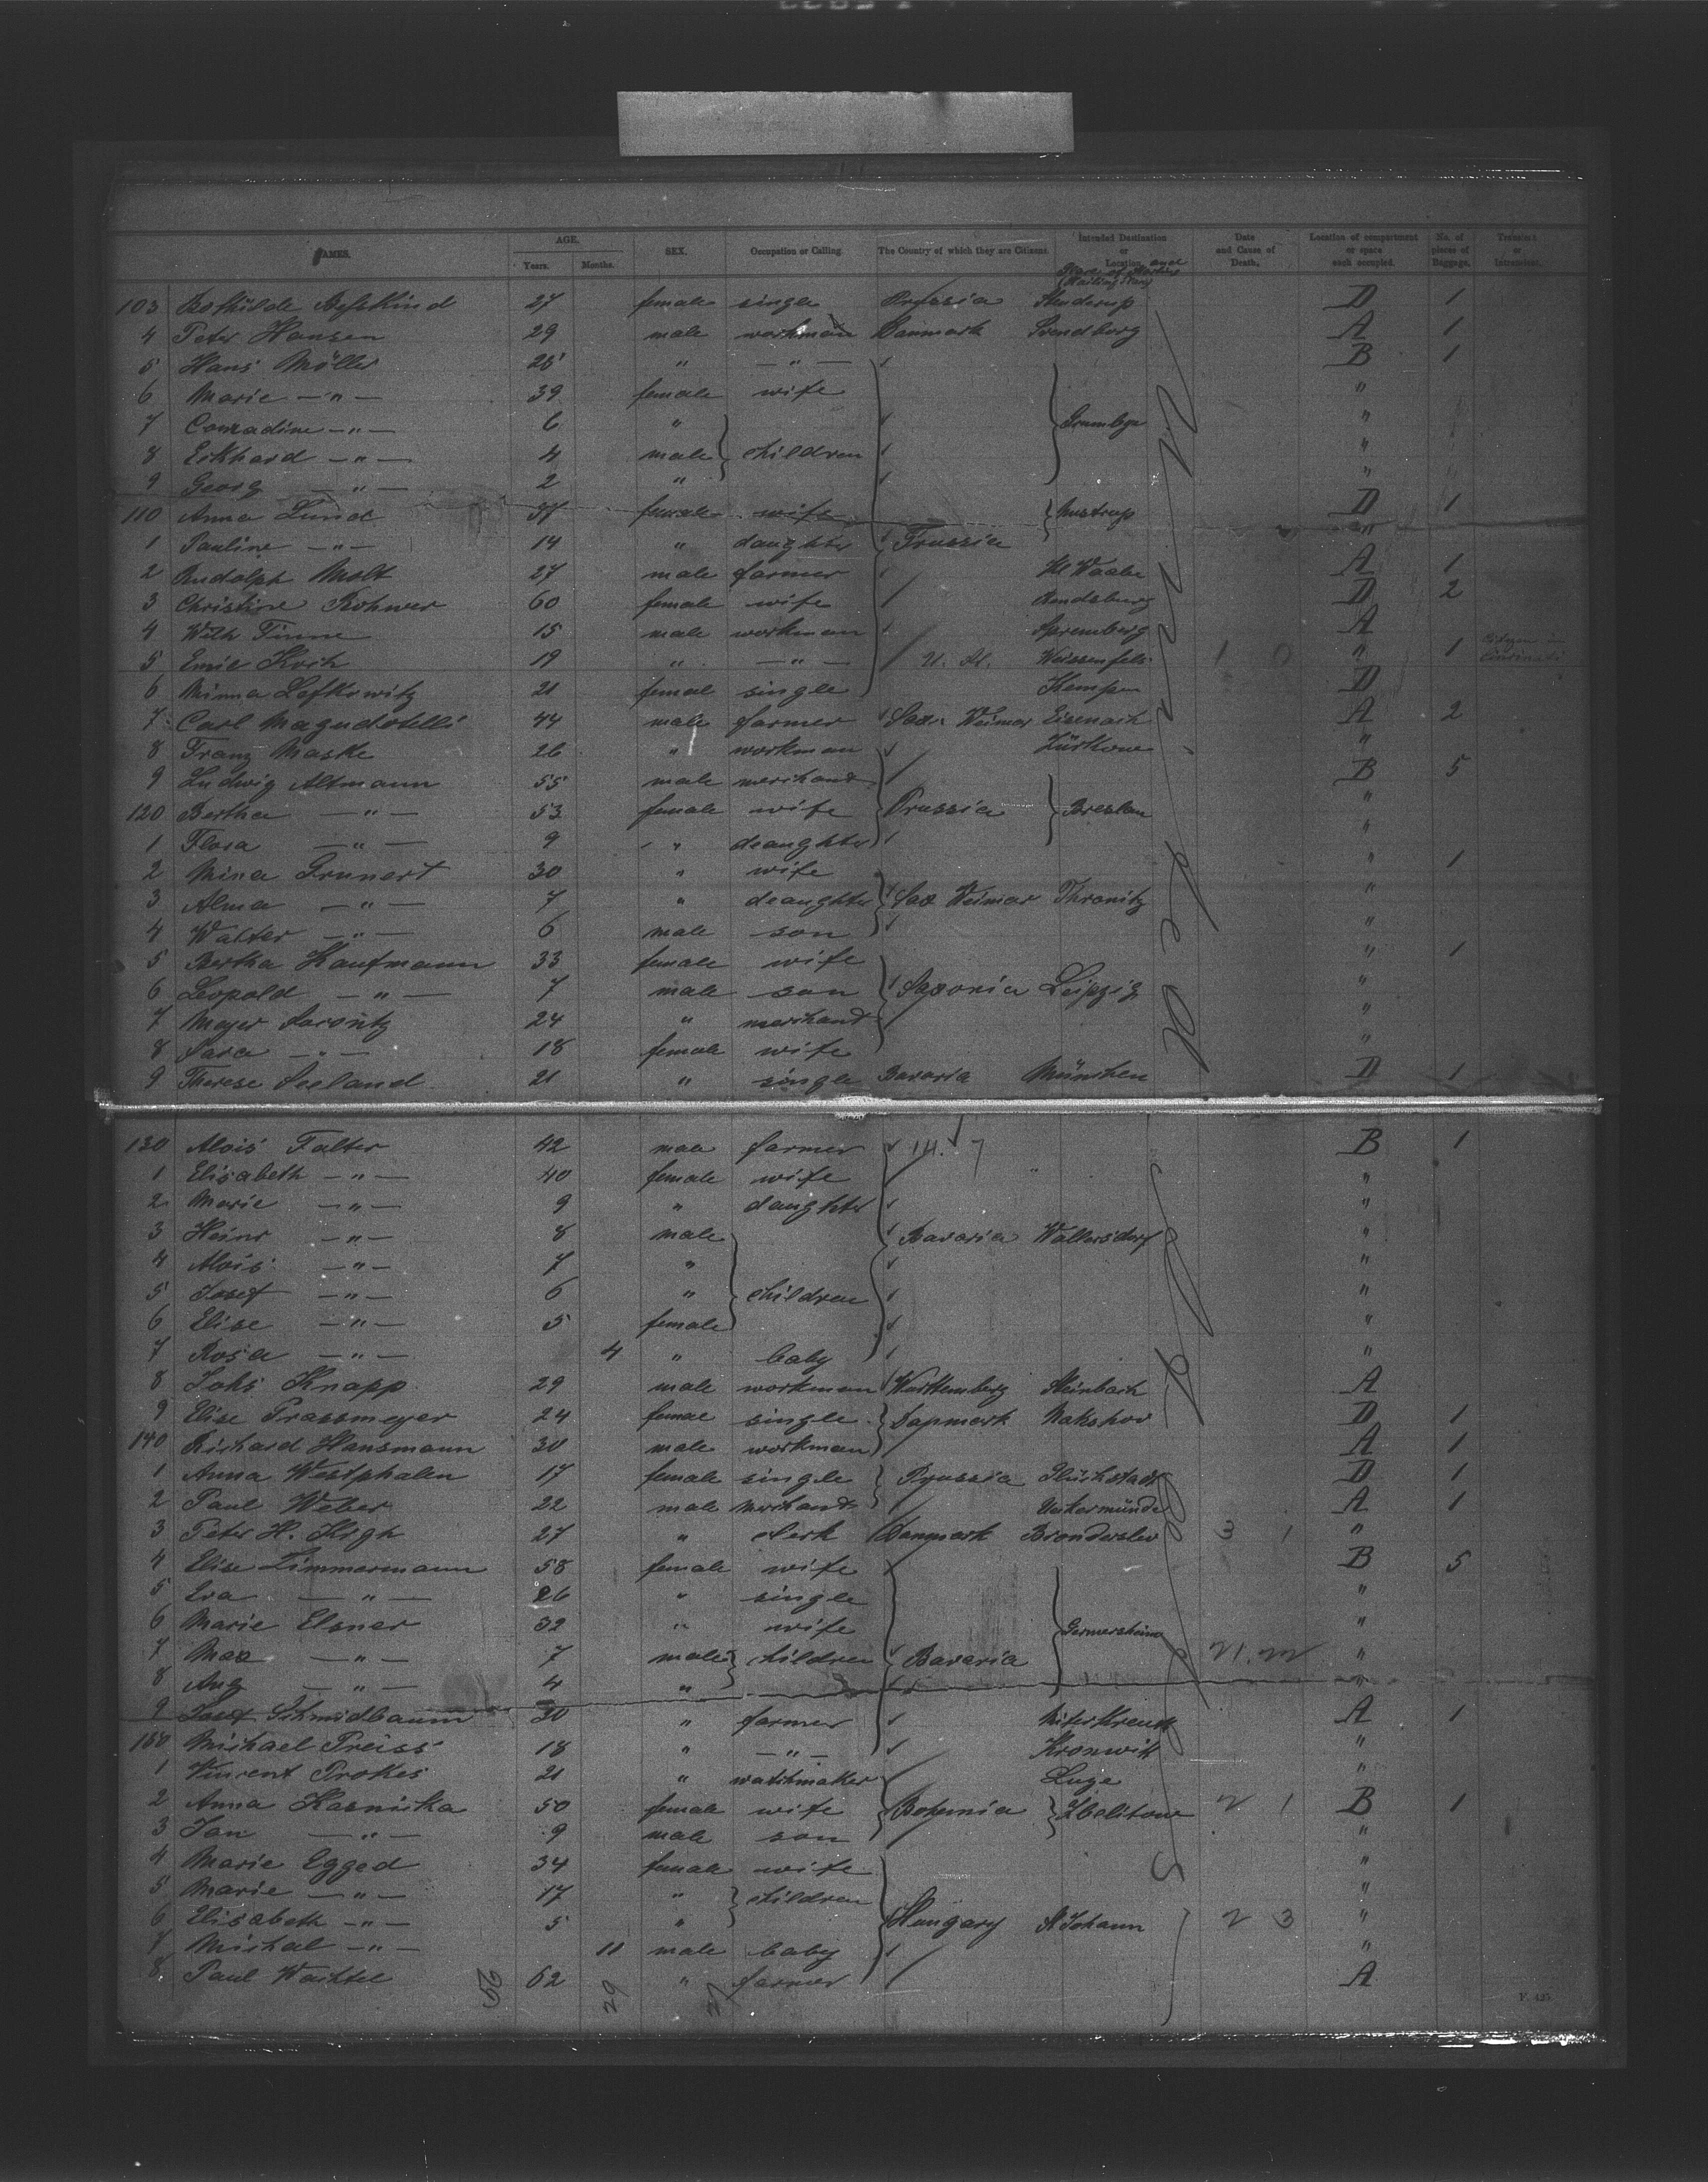 NAMES. AGE. Years. Months. SEX. Occupation or Calling. The Country of which they are Citizens. Intended Destination or Location. Date and Cause of Death. Location of compartment or space each occupied. No. of pieces of Baggage. Transient or Intransient.
103 27 female single Prussia D 1
4 Peter Hansen 29 male workman Danmark Svendborg A 1
5 Hans Möller 25 " — " — B 1
6 Marie — " — 39 female wife "
7 Conradine — " — 6 " "
8 Eckhard — " — 4 male children "
9 Georg — " — 2 " "
110 Anna Lund 37 female wife D 1
1 Pauline — " — 14 " daughter Prussia "
2 Rudolph Molt 27 male farmer A 1
3 Christine Rohwer 60 female wife Rendsburg D 2
4 Wilh 15 male workman Spremberg A
5 Emil Koch 19 " — " — Weissenfels 1 0 " 1
6 Minna Lefkowitz 21 female single Kempen D
7 Carl 44 male farmer Sax. Weimar Eisenach A 2
8 Franz Maske 26 " workman "
9 Ludwig Altmann 55 male merchand B 5
120 Bertha — " — 53 female wife Prussia Breslau "
1 Flora — " — 9 " deaughter "
2 Mina Grunert 30 " wife " 1
3 Alma — " — 7 " deaughter Sax Weimar Thronitz "
4 Walter — " — 6 male son "
5 Bertha Kaufmann 33 female wife " 1
6 Leopold — " — 7 male son Saxonia Leipzig "
7 Meyer 24 " merchand "
8 Sara — " — 18 female wife "
9 Therese Seeland 21 " single Bavaria München D 1
130 Alois Falter 42 male farmer B 1
1 Elisabeth — " — 40 female wife "
2 Marie — " — 9 " daughter "
3 Heinr — " — 8 male Bavaria Wallersdorf "
4 Alois — " — 7 " "
5 Josef — " — 6 " children "
6 Elise — " — 5 female "
7 Rosa — " — 4 " baby "
8 Johs Knapp 29 male workman Württemberg Steinbach A
9 Elise Prassmeyer 24 female single Danmark Nakshov D 1
140 Richard Hansmann 30 male workman A 1
1 Anna Westphalen 17 female single Prussia Glückstadt D 1
2 Paul Weber 22 male merchand Uekermünde A 1
3 Peter H. Krgh 27 " clerk Danmark Bronderslev 3 1 "
4 Elise Zimmermann 58 female wife B 5
5 Eva — " — 26 " single "
6 Marie Elsner 32 " wife Germersheim "
7 Max — " — 7 male children Bavaria "
8 Aug — " — 4 " "
9 Josef Schmidbaum 30 " farmer A 1
150 Michael Preiss 18 " — " — Kronwitt "
1 Vincent Prokes 21 " watchmaker Luze "
2 Anna Kasnicka 50 female wife Bohemia 2 1 B 1
3 Jan — " — 9 male son "
4 Marie Egged 34 female wife "
5 Marie — " — 17 " children "
6 Elisabeth — " — 5 " Hungary St Johann 2 3 "
7 Michal — " — 11 male baby "
8 Paul Wachtel 62 " farmer A